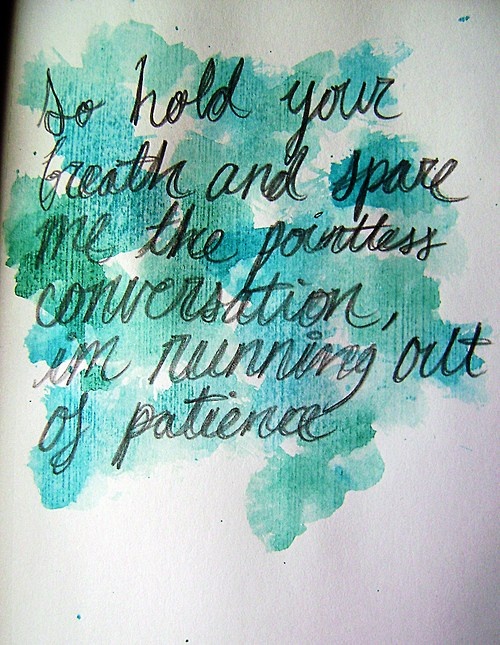 so hold your
breath and spare
me the pointless
conversation,
im running out
of patience